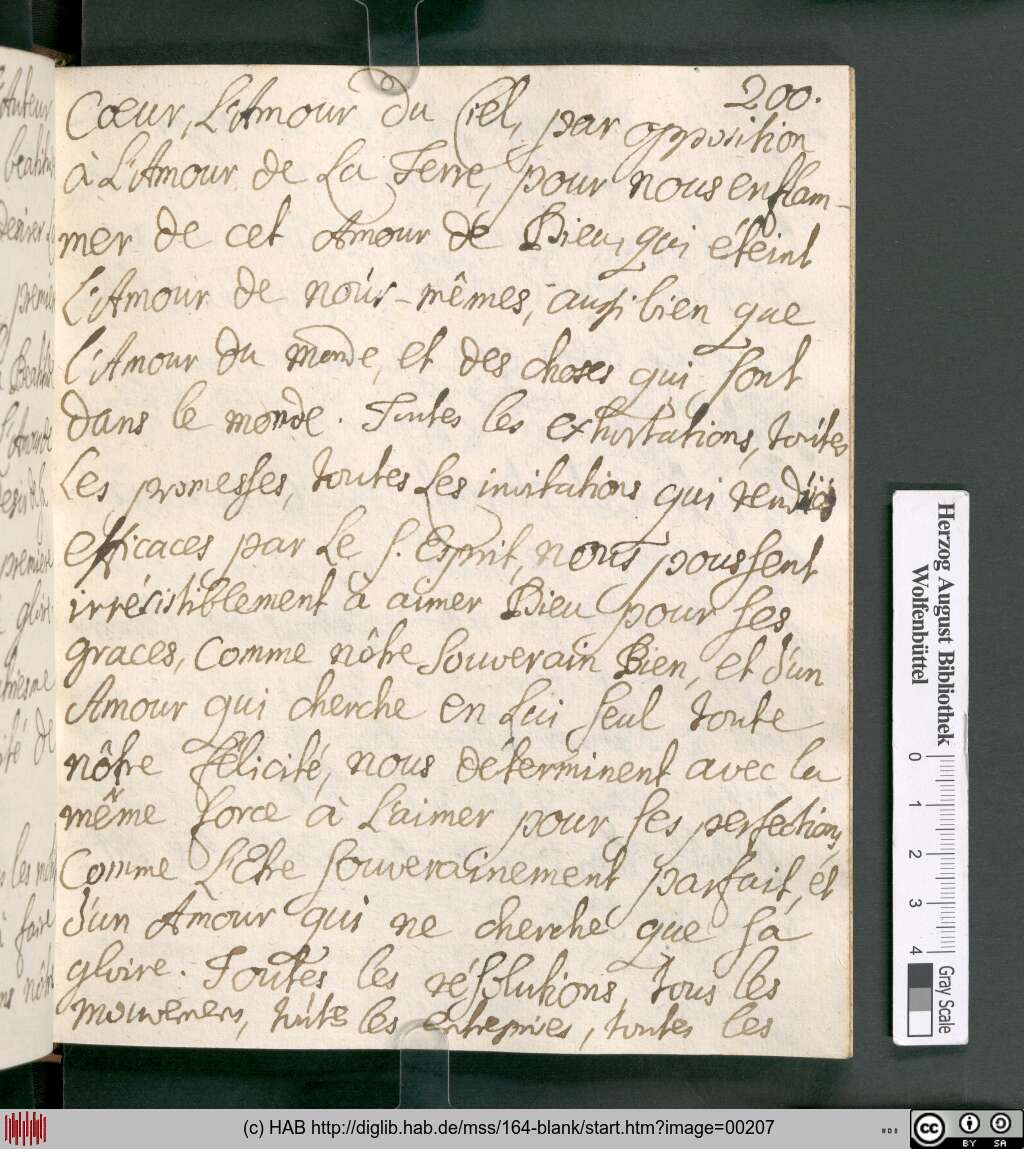 200.
Cœur, L'Amour du Ciel, par opposition
à L'Amour de La Terre, pour nous enflam-
mer de cet Amour de Dieu, qui éteint
L'Amour de nous-mêmes, aussi bien que
l'Amour du monde, et des choses qui sont
dans le monde. Toutes les exhortations, toutes
Les promesses, toutes Les invitations qui rendües
efficaces par Le S. Esprit, nous poussent
irrésistiblement à aimer Dieu pour ses
graces, Comme nôtre Souverain Bien, et d'un
Amour qui cherche en Lui seul toute
nôtre félicité, nous déterminent avec la
même force à L'aimer pour ses perfections,
Comme L'Etre souverainement parfait, et
d'un Amour qui ne cherche que sa
gloire. Toutes les résolutions, tous les
mouvemens, toutes les entreprises, toutes les
Herzog August Bibliothek
Wolfenbüttel
0 1 2 3 4
Gray Scale
(c) HAB http://diglib.hab.de/mss/164-blank/start.htm?image=00207
cc BY SA